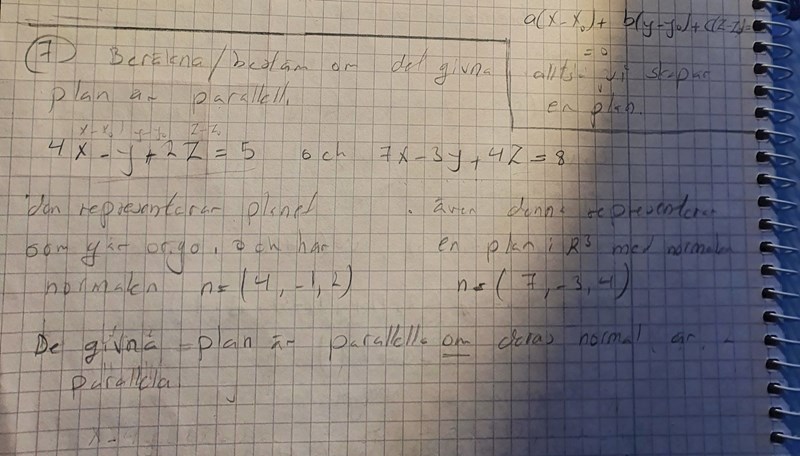 a(x-x₀) + b(y-y₀) + c(z-z₀)
= 0
alltså vi skapar
en plan.
(7) Beräkna/bestäm om det givna
plan är parallell.
x-x₀ y-y₀ z-z₀
4x - y + 2z = 5 och 7x - 3y + 4z = 8
planet
som går och har
normalen n = (4, -1, 2)
även denna representerar
en plan i R³ med normalen
n = (7, -3, 4)
De givna plan är parallella om deras normal är
parallella